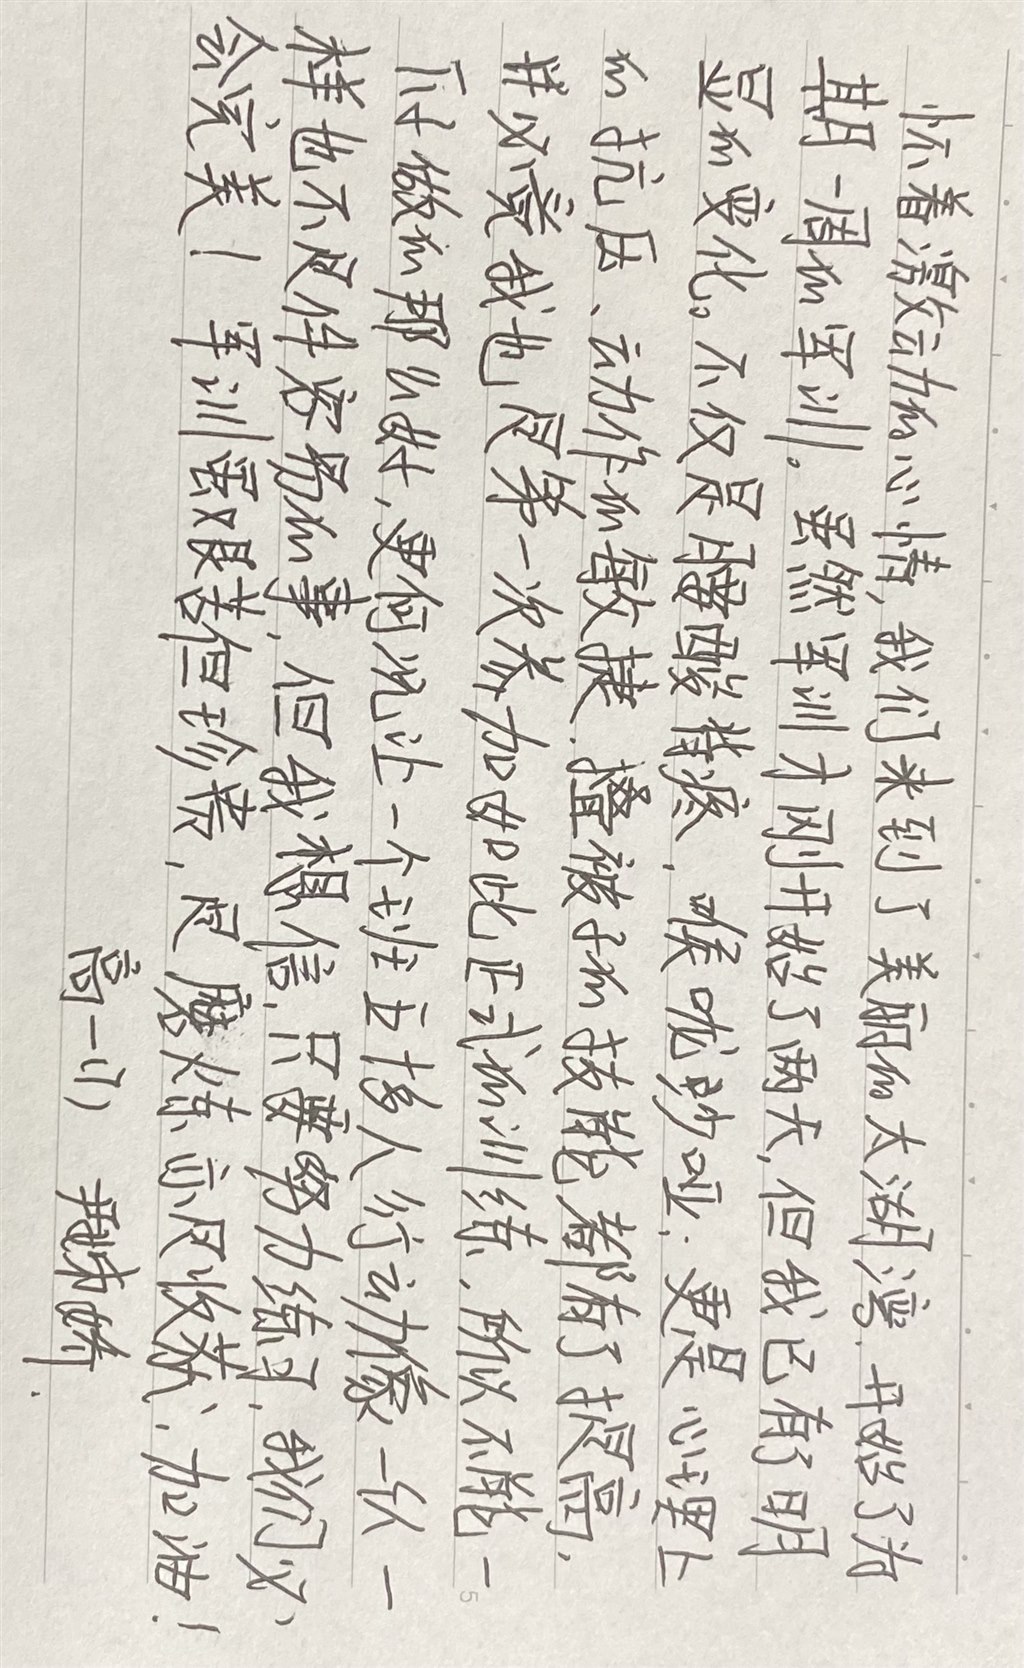 怀着激动的心情,我们来到了美丽的大湖湾.开始了为
期一周的军训。虽然军训才刚开始了两天,但我已有了明
显的变化。不仅是腰酸背疼,喉咙沙哑.更是心理上
的抗压、动作的敏捷.叠被子的技能都有了提高.
毕竟我也是第一次参加如此正式的训练.所以不能一
下子做的那么好,更何况让一个班五十多人行动像一个人一
样也不是件容易的事,但我相信,只要努力练习,我们必
会完美!军训虽艰苦但珍贵,是磨炼亦是收获,加油!
高一(7)
5